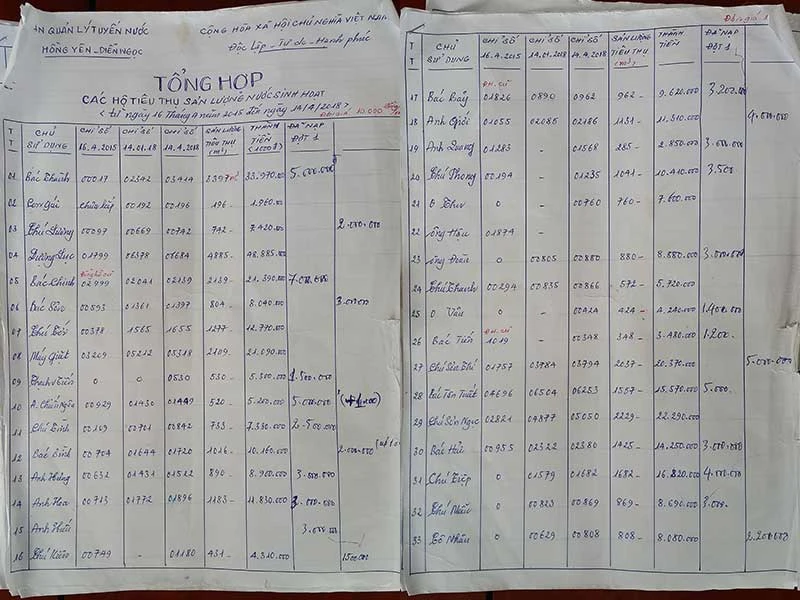 AN QUẢN LÝ TUYẾN NƯỚC
HỒNG YÊN - DIỄN NGỌC
CỘNG HÒA XÃ HỘI CHỦ NGHĨA VIỆT NAM
Độc Lập - Tự do - Hạnh phúc
TỔNG HỢP
CÁC HỘ TIÊU THỤ SẢN LƯỢNG NƯỚC SINH HOẠT
< từ ngày 16 tháng 4 năm 2015 đến ngày 14/4/2018 >
Đơn giá: 10.000
TT CHỦ SỬ DỤNG CHỈ SỐ 16.4.2015 CHỈ SỐ 14.01.18 CHỈ SỐ 14.4.2018 SẢN LƯỢNG TIÊU THỤ (m³) THÀNH TIỀN (1000đ) ĐÃ NẠP ĐỢT 1
01 Bác Thanh 00017 02342 03414 3397 m³ 33.970.000 5.000.000
02 Con gái 00192 00196 196 - 1.960.000
03 Chú Dương 00097 00669 00742 742 - 7.420.000 2.000.000
04 Dương Lục 01799 06378 06684 4885 - 48.885.000
05 Bác Chinh 02999 02041 02139 2139 - 21.390.000 7.000.000
06 00593 01361 01397 804 - 8.040.000 3.000.000
07 00378 1565 1655 1277 - 12.770.000
08 Máy Giặt 03209 05212 05318 2109 - 21.090.000
09 0 0 0530 530 - 5.300.000 1.500.000
10 00929 01430 01449 520 - 5.200.000 5.000.000
11 00109 00701 00842 733 - 7.330.000 2.500.000
12 Bác Bình 00704 01644 01720 1016 - 10.160.000 2.000.000
13 Anh Hưng 00632 01431 01522 890 - 8.900.000 3.000.000
14 Anh Hoa 00713 01772 01896 1183 - 11.830.000 3.000.000
15 Anh 3.000.000
16 00749 - 01180 431 - 4.310.000 1500.000
Đơn giá 1
TT CHỦ SỬ DỤNG CHỈ SỐ 16.4.2015 CHỈ SỐ 14.01.2018 CHỈ SỐ 14.4.2018 SẢN LƯỢNG TIÊU THỤ (m³) THÀNH TIỀN ĐÃ NẠP ĐỢT 1
ĐH. cũ
17 Bác Bảy 01826 0890 0962 962 - 9.620.000 3.200.000
18 Anh Giới 01055 02085 02186 1131 - 11.310.000 4.000.000
19 Anh 01283 - 01568 285 - 2.850.000
20 Chú Phong 00194 - 01235 1041 - 10.410.000 3.500
21 O Thư 0 - 00760 760 - 7.600.000
22 Ông Hậu 01874 -
23 Ông Đoàn 0 00805 00880 880 - 8.880.000 3.000.000
24 Chú Thanh 00294 00835 00866 572 - 5.720.000
25 O Vân 0 00424 424 - 4.240.000 1.400.000
ĐH. cũ
26 Bác Tiến 1019 - 00348 348 - 3.480.000 1.200
27 01757 03784 03794 2037 - 20.370.000 5.000.000
28 04696 06504 06253 1557 - 15.570.000 5.000
29 Chú Sơn Ngọc 02821 04877 05050 2229 - 22.290.000
30 Bác 00955 02322 02380 1425 - 14.250.000 3.000.000
31 Chú Tiếp 0 01579 01682 1682 - 16.820.000 4.000.000
32 0 00823 00869 869 - 8.690.000 3.000
33 Cô Nhâm 0 00629 00808 808 - 8.080.000 3.200.000